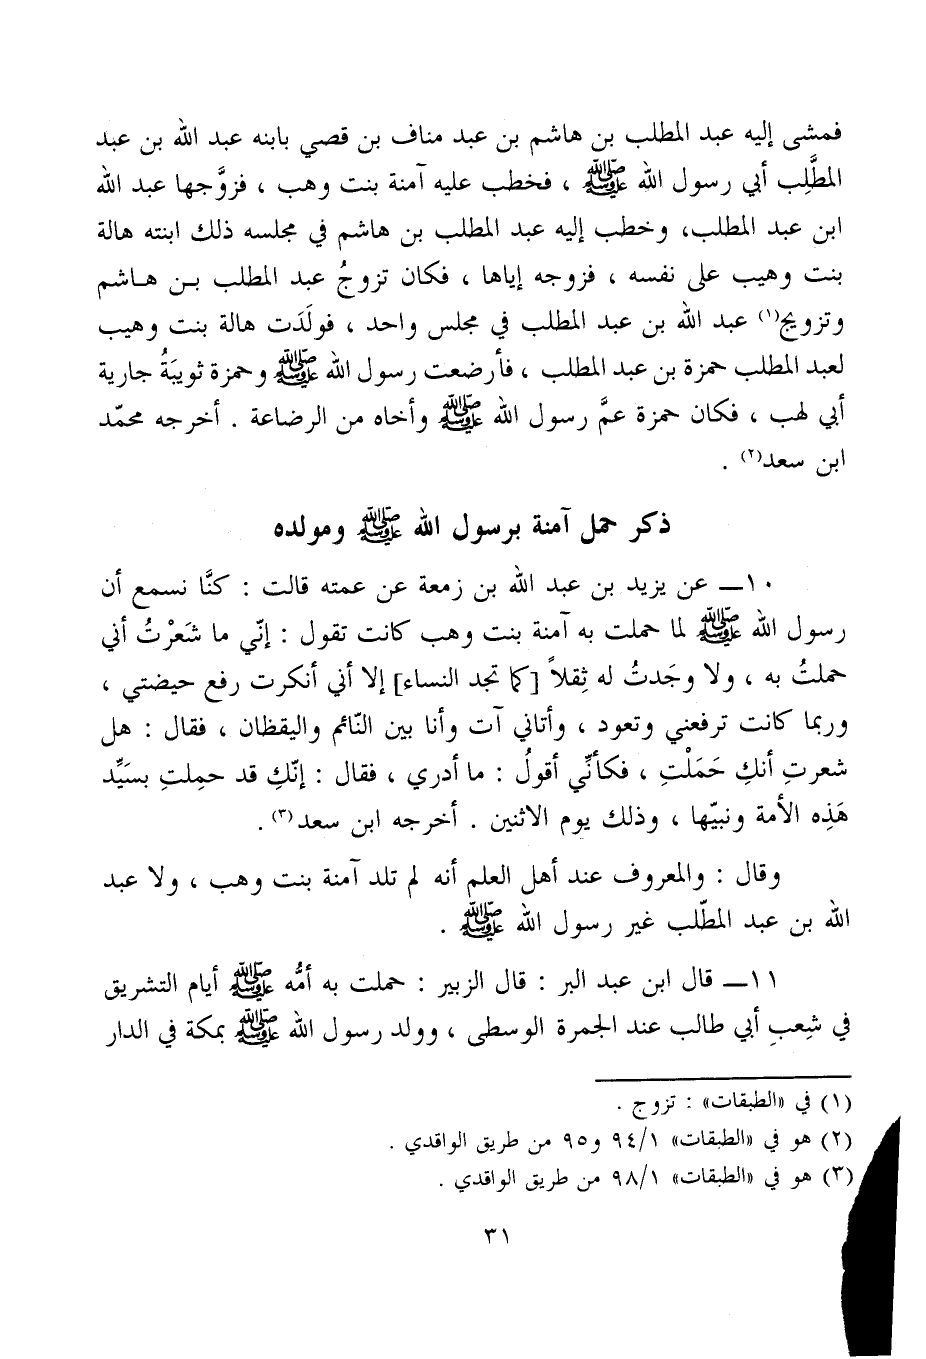 فمشى إليه عبد المطلب بن هاشم بن عبد مناف بن قصي بابنه عبد الله بن عبد
المطَّلِب أبي رسول الله ﷺ ، فخطب عليه آمنة بنت وهب ، فزوَّجها عبد الله
ابن عبد المطلب، وخطب إليه عبد المطلب بن هاشم في مجلسه ذلك ابنته هالة
بنت وهيب على نفسه ، فزوجه إياها ، فكان تزوجُ عبد المطلب بـن هـاشم
وتزويج(١) عبد الله بن عبد المطلب في مجلس واحد ، فولَدَت هالة بنت وهيب
لعبد المطلب حمزة بن عبد المطلب ، فأرضعت رسول الله ﷺ وحمزة ثويبَةُ جارية
أبي لهب ، فكان حمزة عمَّ رسول الله ﷺ وأخاه من الرضاعة . أخرجه محمّد
ابن سعد(٢) .
ذكر حمل آمنة برسول الله ﷺ ومولده
١٠ــ عن يزيد بن عبد الله بن زمعة عن عمته قالت : كنَّا نسمع أن
رسول الله ﷺ لما حملت به آمنة بنت وهب كانت تقول : إنّي ما شَعَرْتُ أني
حملتُ به ، ولا وجَدتُ له ثِقلاً [كما تجد النساء] إلا أني أنكرت رفع حيضتي ،
وربما كانت ترفعني وتعود ، وأتاني آت وأنا بين النّائم واليقظان ، فقال : هل
شعرتِ أنكِ حَمَلْتِ ، فكأنّي أقولُ : ما أدري ، فقال : إنّكِ قد حمِلتِ بسَيِّد
هَذِه الأمة ونبيّها ، وذلك يوم الاثنين . أخرجه ابن سعد(٣) .
وقال : والمعروف عند أهل العلم أنه لم تلد آمنة بنت وهب ، ولا عبد
الله بن عبد المطّلب غير رسول الله ﷺ .
١١ــ قال ابن عبد البر : قال الزبير : حملت به أمُّه ﷺ أيام التشريق
في شِعبِ أبي طالب عند الجمرة الوسطى ، وولد رسول الله ﷺ بمكة في الدار
(١) في «الطبقات» : تزوج .
(٢) هو في «الطبقات» ٩٤/١ و٩٥ من طريق الواقدي .
(٣) هو في «الطبقات» ٩٨/١ من طريق الواقدي .
٣١